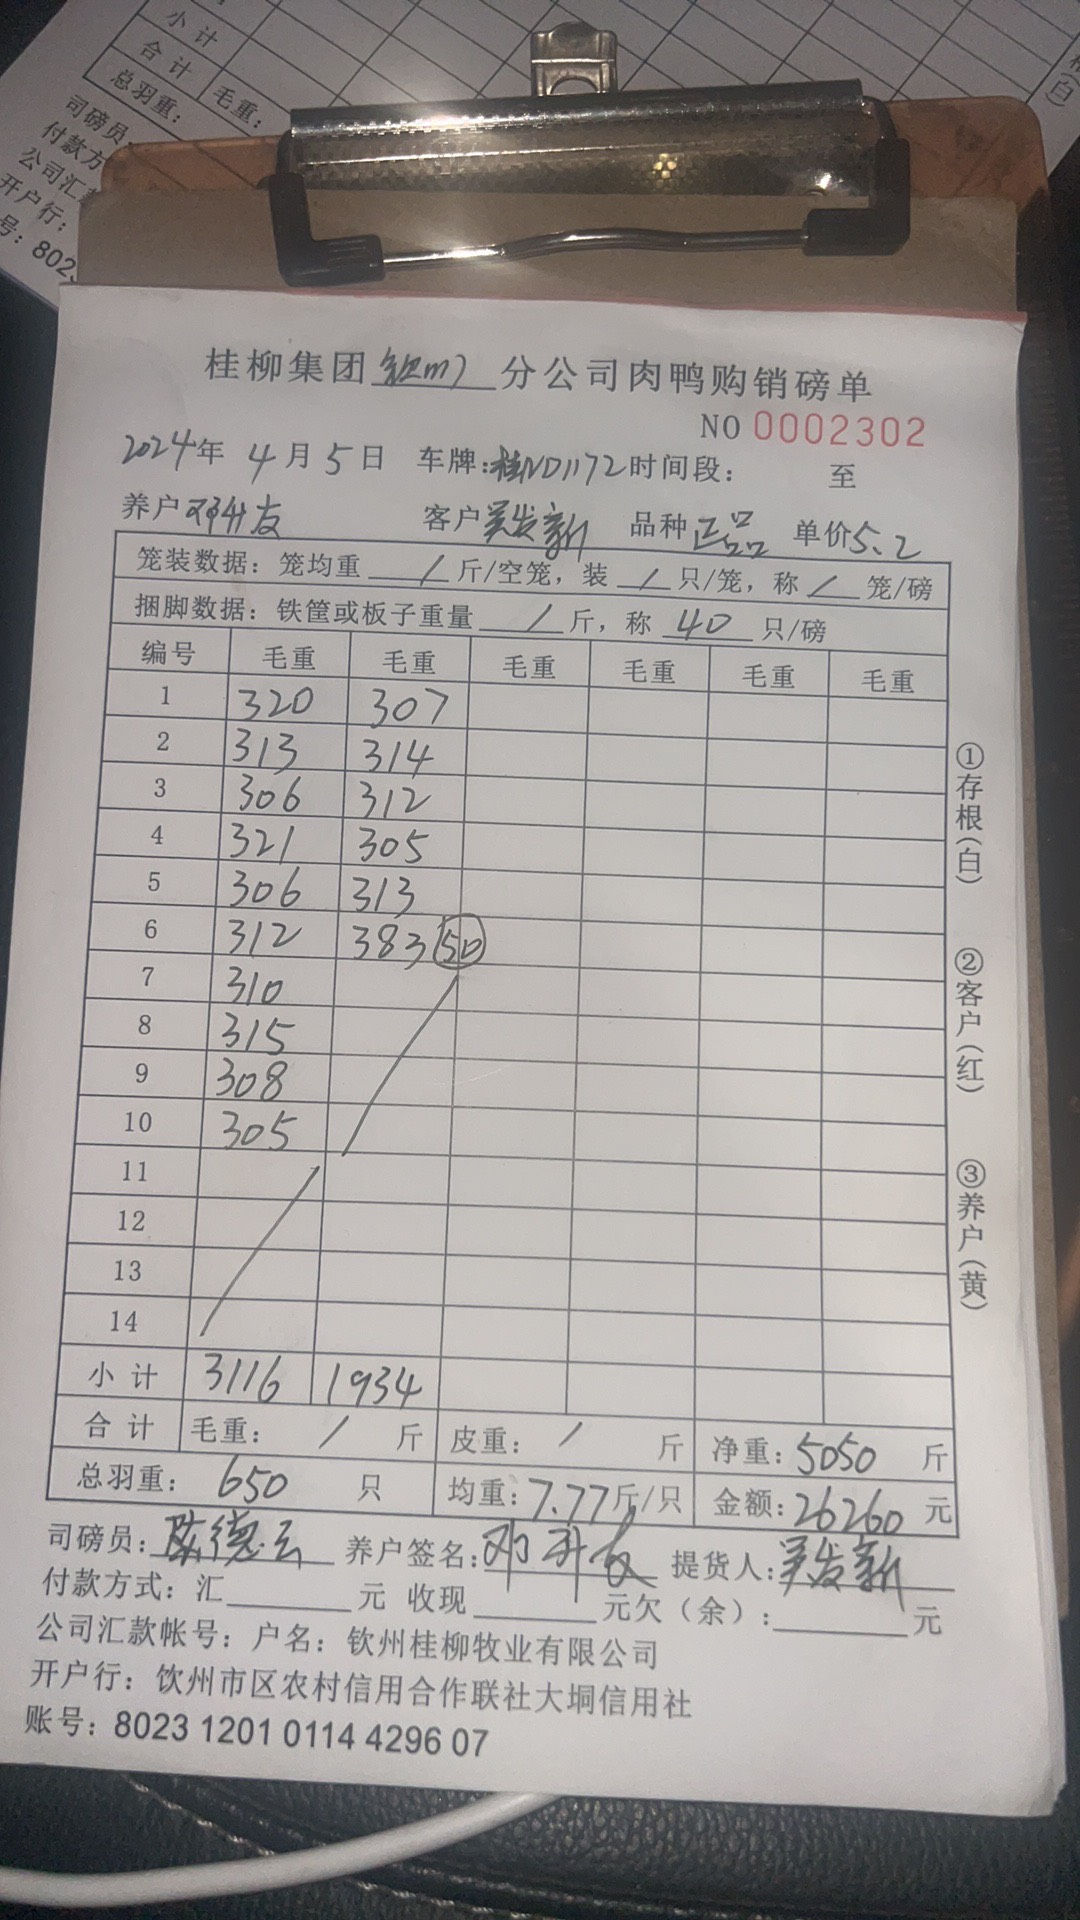 小计
合计
总羽重: 毛重:
司磅员
付款方
公司汇
开户行:
号: 802
桂柳集团钦州分公司肉鸭购销磅单
NO 0002302
2024年 4月 5日 车牌:桂ND1172时间段: 至
养户邓升友 客户吴发新 品种正品 单价5.2
笼装数据: 笼均重 / 斤/空笼, 装 / 只/笼, 称 / 笼/磅
捆脚数据: 铁筐或板子重量 / 斤, 称 40 只/磅
编号 毛重 毛重 毛重 毛重 毛重 毛重
1 320 307
2 313 314
3 306 312
4 321 305
5 306 313
6 312 383 50
7 310
8 315
9 308
10 305
11
12
13
14
小计 3116 1934
合计 毛重: / 斤 皮重: / 斤 净重: 5050 斤
总羽重: 650 只 均重: 7.77斤/只 金额: 26260 元
司磅员: 陈德云 养户签名: 邓升友 提货人: 吴发新
付款方式: 汇 元 收现 元欠(余): 元
公司汇款帐号: 户名: 钦州桂柳牧业有限公司
开户行: 饮州市区农村信用合作联社大垌信用社
账号: 8023 1201 0114 4296 07
①存根(白)
②客户(红)
③养户(黄)